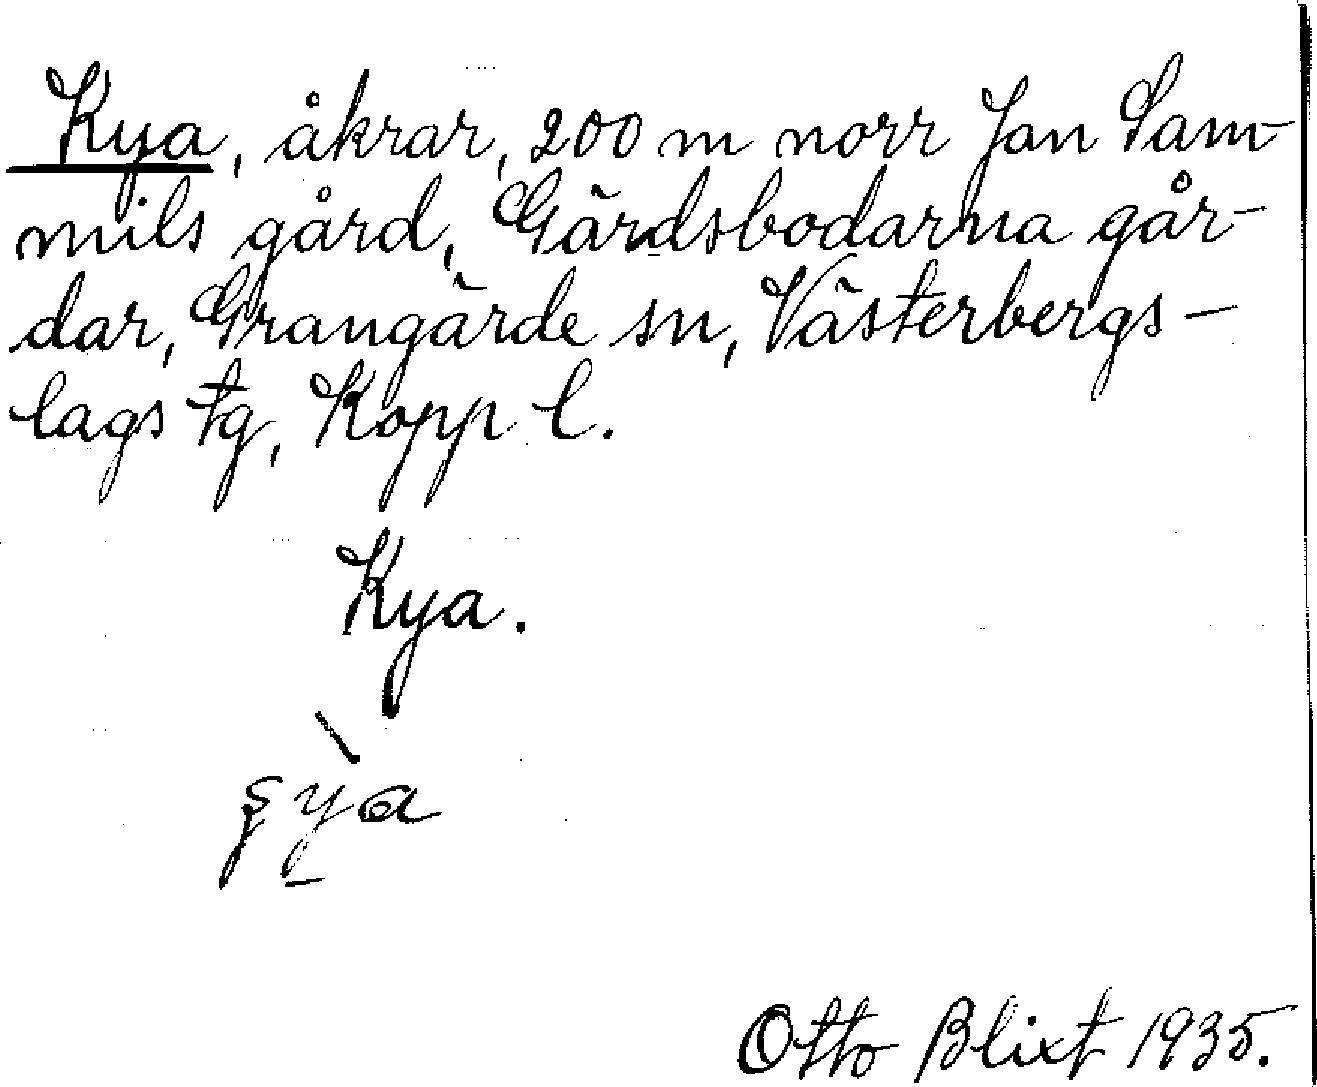 Kya, åkrar, 200 m norr Jan Sam-
mils gård, Gärdsbodarna går-
dar, Grangärde sn, Västerbergs-
lags tg, Kopp l.
Kya.
ya
Otto Blixt 1935.